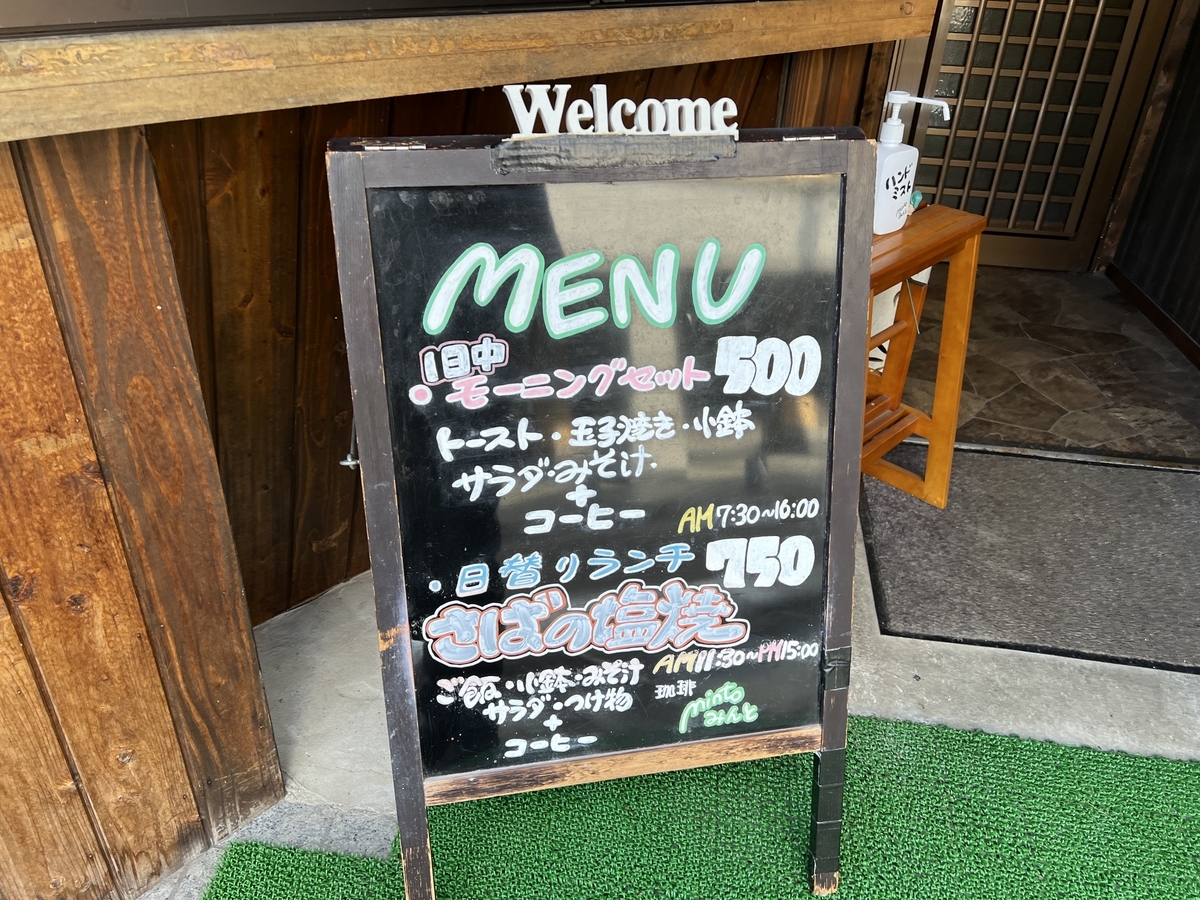 Welcome
MENU
1日中
・モーニングセット 500
トースト・玉子焼き・小鉢
サラダ・みそ汁
+
コーヒー
AM7:30~16:00
・日替りランチ 750
さばの塩焼
AM11:30~PM15:00
ご飯・小鉢・みそ汁
サラダ・つけ物
+
コーヒー
珈琲
minto
みんと
ハンド
ミスト